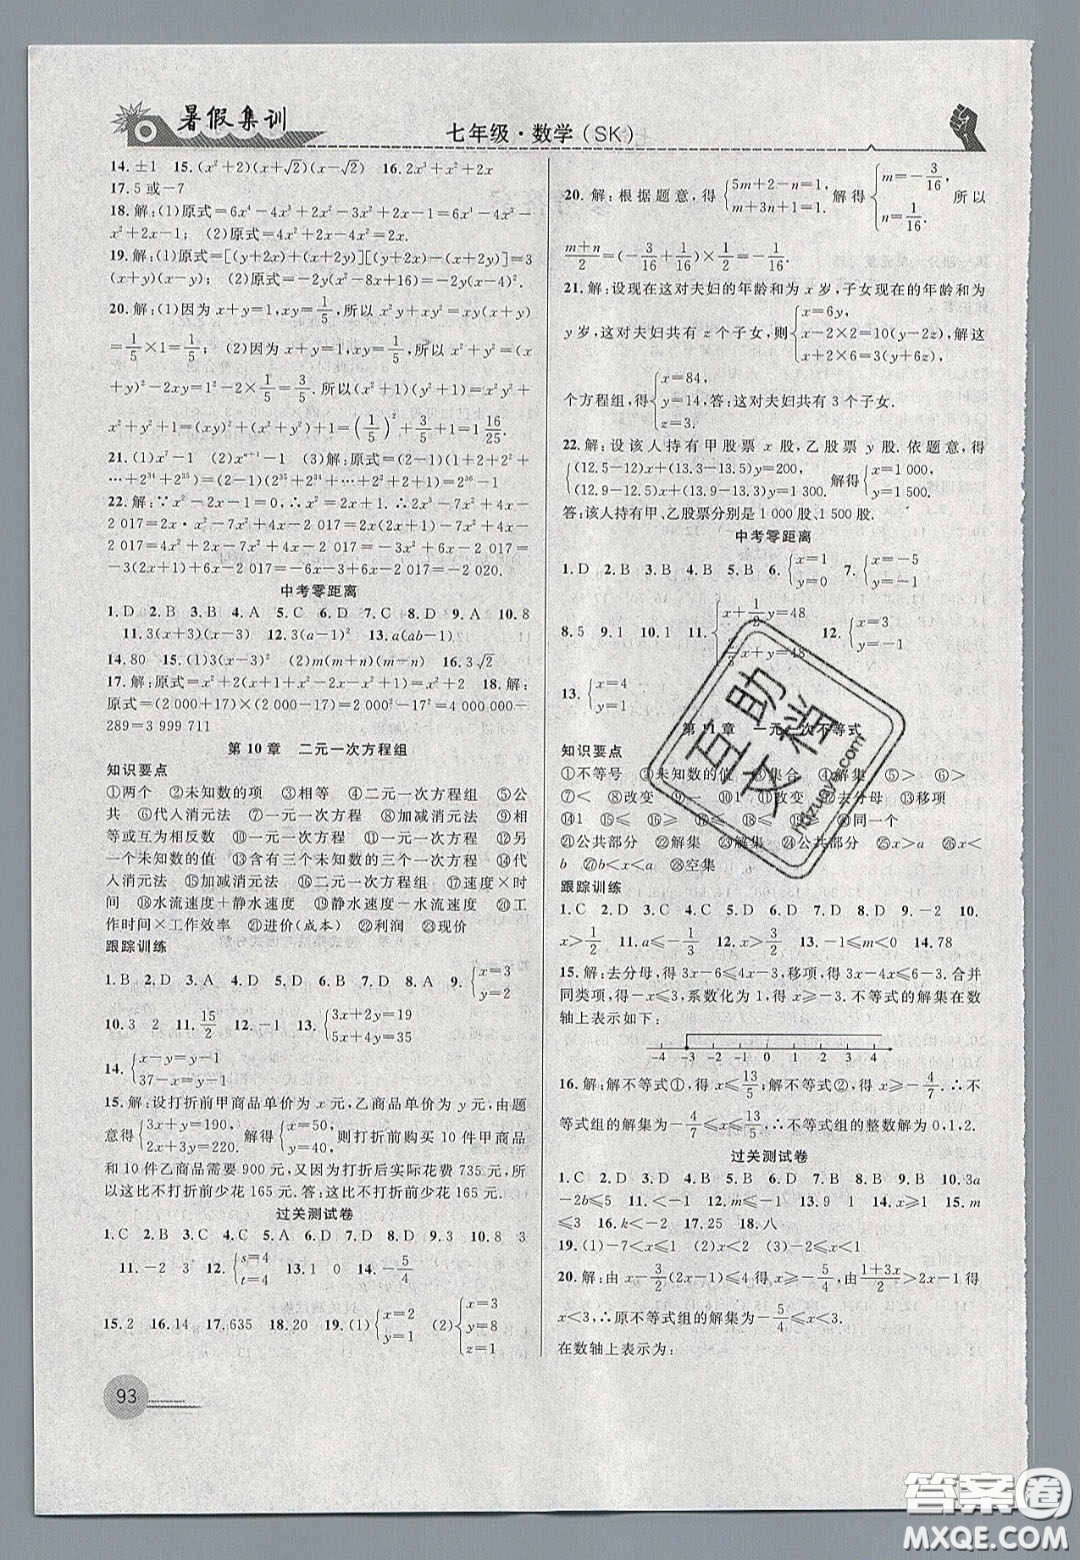 暑假集训
七年级·数学(SK)
14. ±1　15. (x²+2)(x+√2)(x-√2)　16. 2x³+x²+2x
17. 5或-7
18. 解:(1)原式=6x⁴-4x³+2x²-3x³+2x²-x=6x⁴-7x³+
4x²-x;　(2)原式=4x²+4x+1-4x²-2x=2x+1.
19. 解:(1)原式=[(y+2x)+(x+2y)][(y+2x)-(x+2y)]=3
(x+y)(x-y);　(2)原式=-2y(x²-8x+16)=-2y(x-4)².
20. 解:(1)因为x+y=1,xy=1/5,所以x²y+xy²=xy(x+y)
=1/5×1=1/5;　(2)因为x+y=1,xy=1/5,所以x²+y²=(x
+y)²-2xy=1²-2×1/5=3/5.所以(x²+1)(y²+1)=x²y²+
x²+y²+1=(xy)²+(x²+y²)+1=(1/5)²+3/5+1=1 16/25.
21. (1)x⁷-1　(2)xⁿ⁺¹-1　(3)原式=(2-1)(1+2+2²+
…+2³⁴+2³⁵)=(2-1)(2³⁵+2³⁴+…+2²+2+1)=2³⁶-1
22. 解:∵x²-2x-1=0 ∴x²=2x+1. ∴2x³-7x²+4x-
2 017=2x·x²-7x²+4x-2 017=2x(2x+1)-7x²+4x-
2 017=4x²+2x-7x²+4x-2 017=-3x²+6x-2 017=
-3(2x+1)+6x-2 017=-6x-3+6x-2 017=-2 020.
中考零距离
1. D　2. B　3. B　4. A　5. C　6. D　7. C　8. D　9. A　10. 8
11. 3(x+3)(x-3)　12. 3(a-1)²　13. a(ab-1)
14. 80　15. (1)3(x-3)²　(2)m(m+n)(m-n)　16. 3√2
17. 解:原式=x²+2(x+1+x²+x)-4x=x²+2　18. 解:
原式=(2 000+17)×(2 000-17)=2 000²-17²=4 000 000-
289=3 999 711
第10章　二元一次方程组
知识要点
①两个　②未知数的项　③相等　④二元一次方程组　⑤公
共　⑥代人消元法　⑦一元一次方程　⑧加减消元法　⑨相
等或互为相反数　⑩一元一次方程　⑪一元一次方程　⑫另
一个未知数的值　⑬含有三个未知数的三个一次方程　⑭代
人消元法　⑮加减消元法　⑯二元一次方程组　⑰速度×时
间　⑱水流速度+静水速度　⑲静水速度-水流速度　⑳
工作时间×工作效率　㉑进价(成本)　㉒利润　㉓现价
跟踪训练
1. B　2. D　3. A　4. D　5. D　6. D　7. B　8. C　9. {x=3 y=2
10. 3　2　11. 15/2　12. -1　13. {3x+2y=19 5x+4y=35
14. {x-y=y-1 37-x=y-x
15. 解:设打折前甲商品单价为x元,乙商品单价为y元,由题
意得{3x+y=190, 2x+3y=220. 解得{x=50, y=40, 则打折前购买10件甲商品
和10件乙商品需要900元,因为打折后实际花费735元,所
以这比不打折前少花165元.答:这比不打折前少花165元.
过关测试卷
1. C　2. B　3. C　4. C　5. A　6. D　7. D　8. B　9. B　10. 8　3
11. -2　3　12. {s=4 t=4　13. 1　0　14. -5/4
15. 2　16. 14　17. 635　18. 20　19. (1){x=2 y=1　(2){x=3 y=8 z=1
93
20. 解:根据题意,得{5m+2-n=1, m+3n+1=1. 解得{m=-3/16, n=1/16. 所以
(m+n)/2=(-3/16+1/16)÷2=-1/16.
21. 解:设现在这对夫妇的年龄和为x岁,子女现在的年龄和为
y岁,这对夫妇共有z个子女,则{x=6y, x-2×2=10(y-2z), x+2×6=3(y+6z), 解这
个方程组,得{x=84, y=14, z=3. 答:这对夫妇共有3个子女.
22. 解:设该人持有甲股票x股,乙股票y股.依题意,得
{(12.5-12)x+(13.3-13.5)y=200, (12.9-12.5)x+(13.9-13.3)y=1 300. 解得{x=1 000, y=1 500.
答:该人持有甲、乙股票分别是1 000股、1 500股.
中考零距离
1. D　2. B　3. D　4. B　5. B　6. {x=1 y=0　7. {x=-5 y=-1
8. 5　9. 1　10. 1　11. {x+1/2y=48 x+y=48　12. {x=3 y=-1
13. {x=4 y=1
第11章　一元一次不等式
知识要点
①不等号　②未知数的值　③集合　④解集　⑤>　⑥>
⑦<　⑧改变　⑨-1　⑩1　⑪改变　⑫去分母　⑬移项
⑭1　⑮>　⑯≤　⑰≥　⑱≤　⑲>　⑳同一个
㉑公共部分　㉒解集　㉓解集　㉔公共部分　㉕x>a　㉖x<
b　㉗b<x<a　㉘空集
跟踪训练
1. C　2. D　3. D　4. D　5. C　6. D　7. B　8. A　9. -2　10.
x>1/2　11. a≤-1/2　12. x>3/2　13. -1≤m<0　14. 78
15. 解:去分母,得3x-6≤4x-3,移项,得3x-4x≤6-3.合并
同类项,得-x≤3,系数化为1,得x≥-3.不等式的解集在数
轴上表示如下:
-4 -3 -2 -1 0 1 2 3 4
16. 解:解不等式①,得x≤13/5;解不等式②,得x≥-4/7.∴不
等式组的解集为-4/7≤x≤13/5,∴不等式组的整数解为0,1,2.
过关测试卷
1. C　2. C　3. B　4. A　5. D　6. A　7. B　8. A　9. C　10. 3a-
2b≤5　11. <-1　12. m≤-1　13. 9　1　14. x≥1　15. m
≤3　16. k<-2　17. 25　18. 八
19. (1)-7<x<1　(2)x<2　(3)-2≤x<1　(4)x≤1
20. 解:由x-3/2(2x-1)≤4得x≥-5/4,由(1+3x)/2>2x-1得
x<3,∴原不等式组的解集为-5/4≤x<3.
在数轴上表示为:
互助文档
hdzuoye.com
答案圈
MXQE.COM